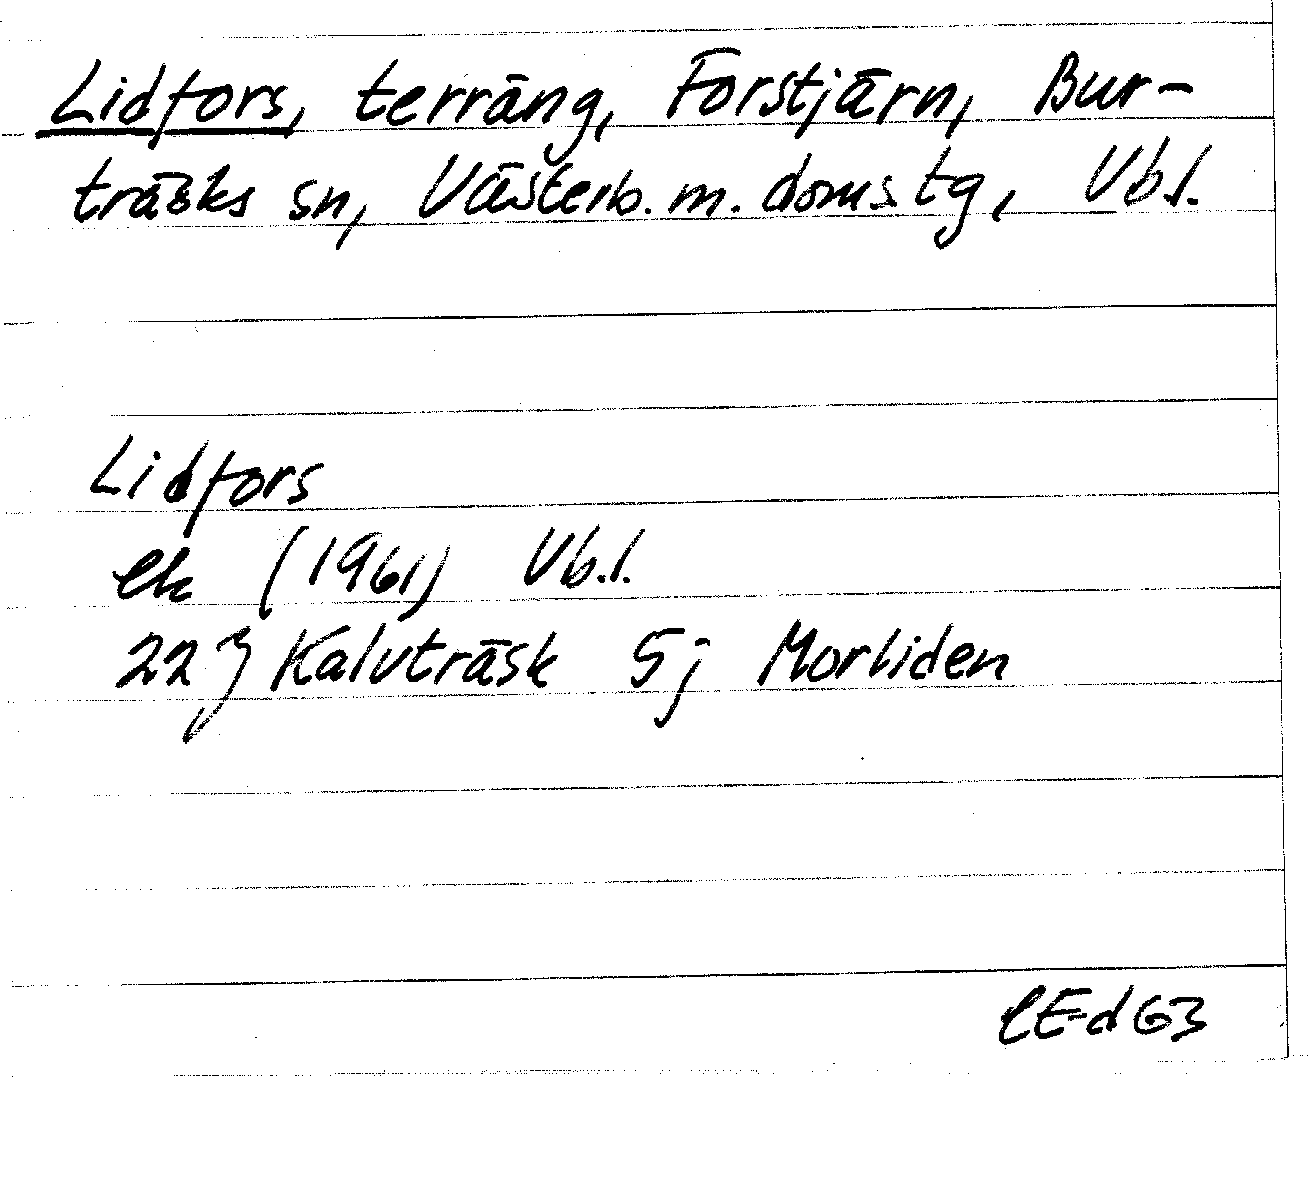 Lidfors, terräng, Forstjärn, Bur-
träsks sn, Västerb. m. domstg, Vb.l.
Lidfors
ek (1961) Vb.l.
22 J Kalvträsk 5j Morliden
CEd63